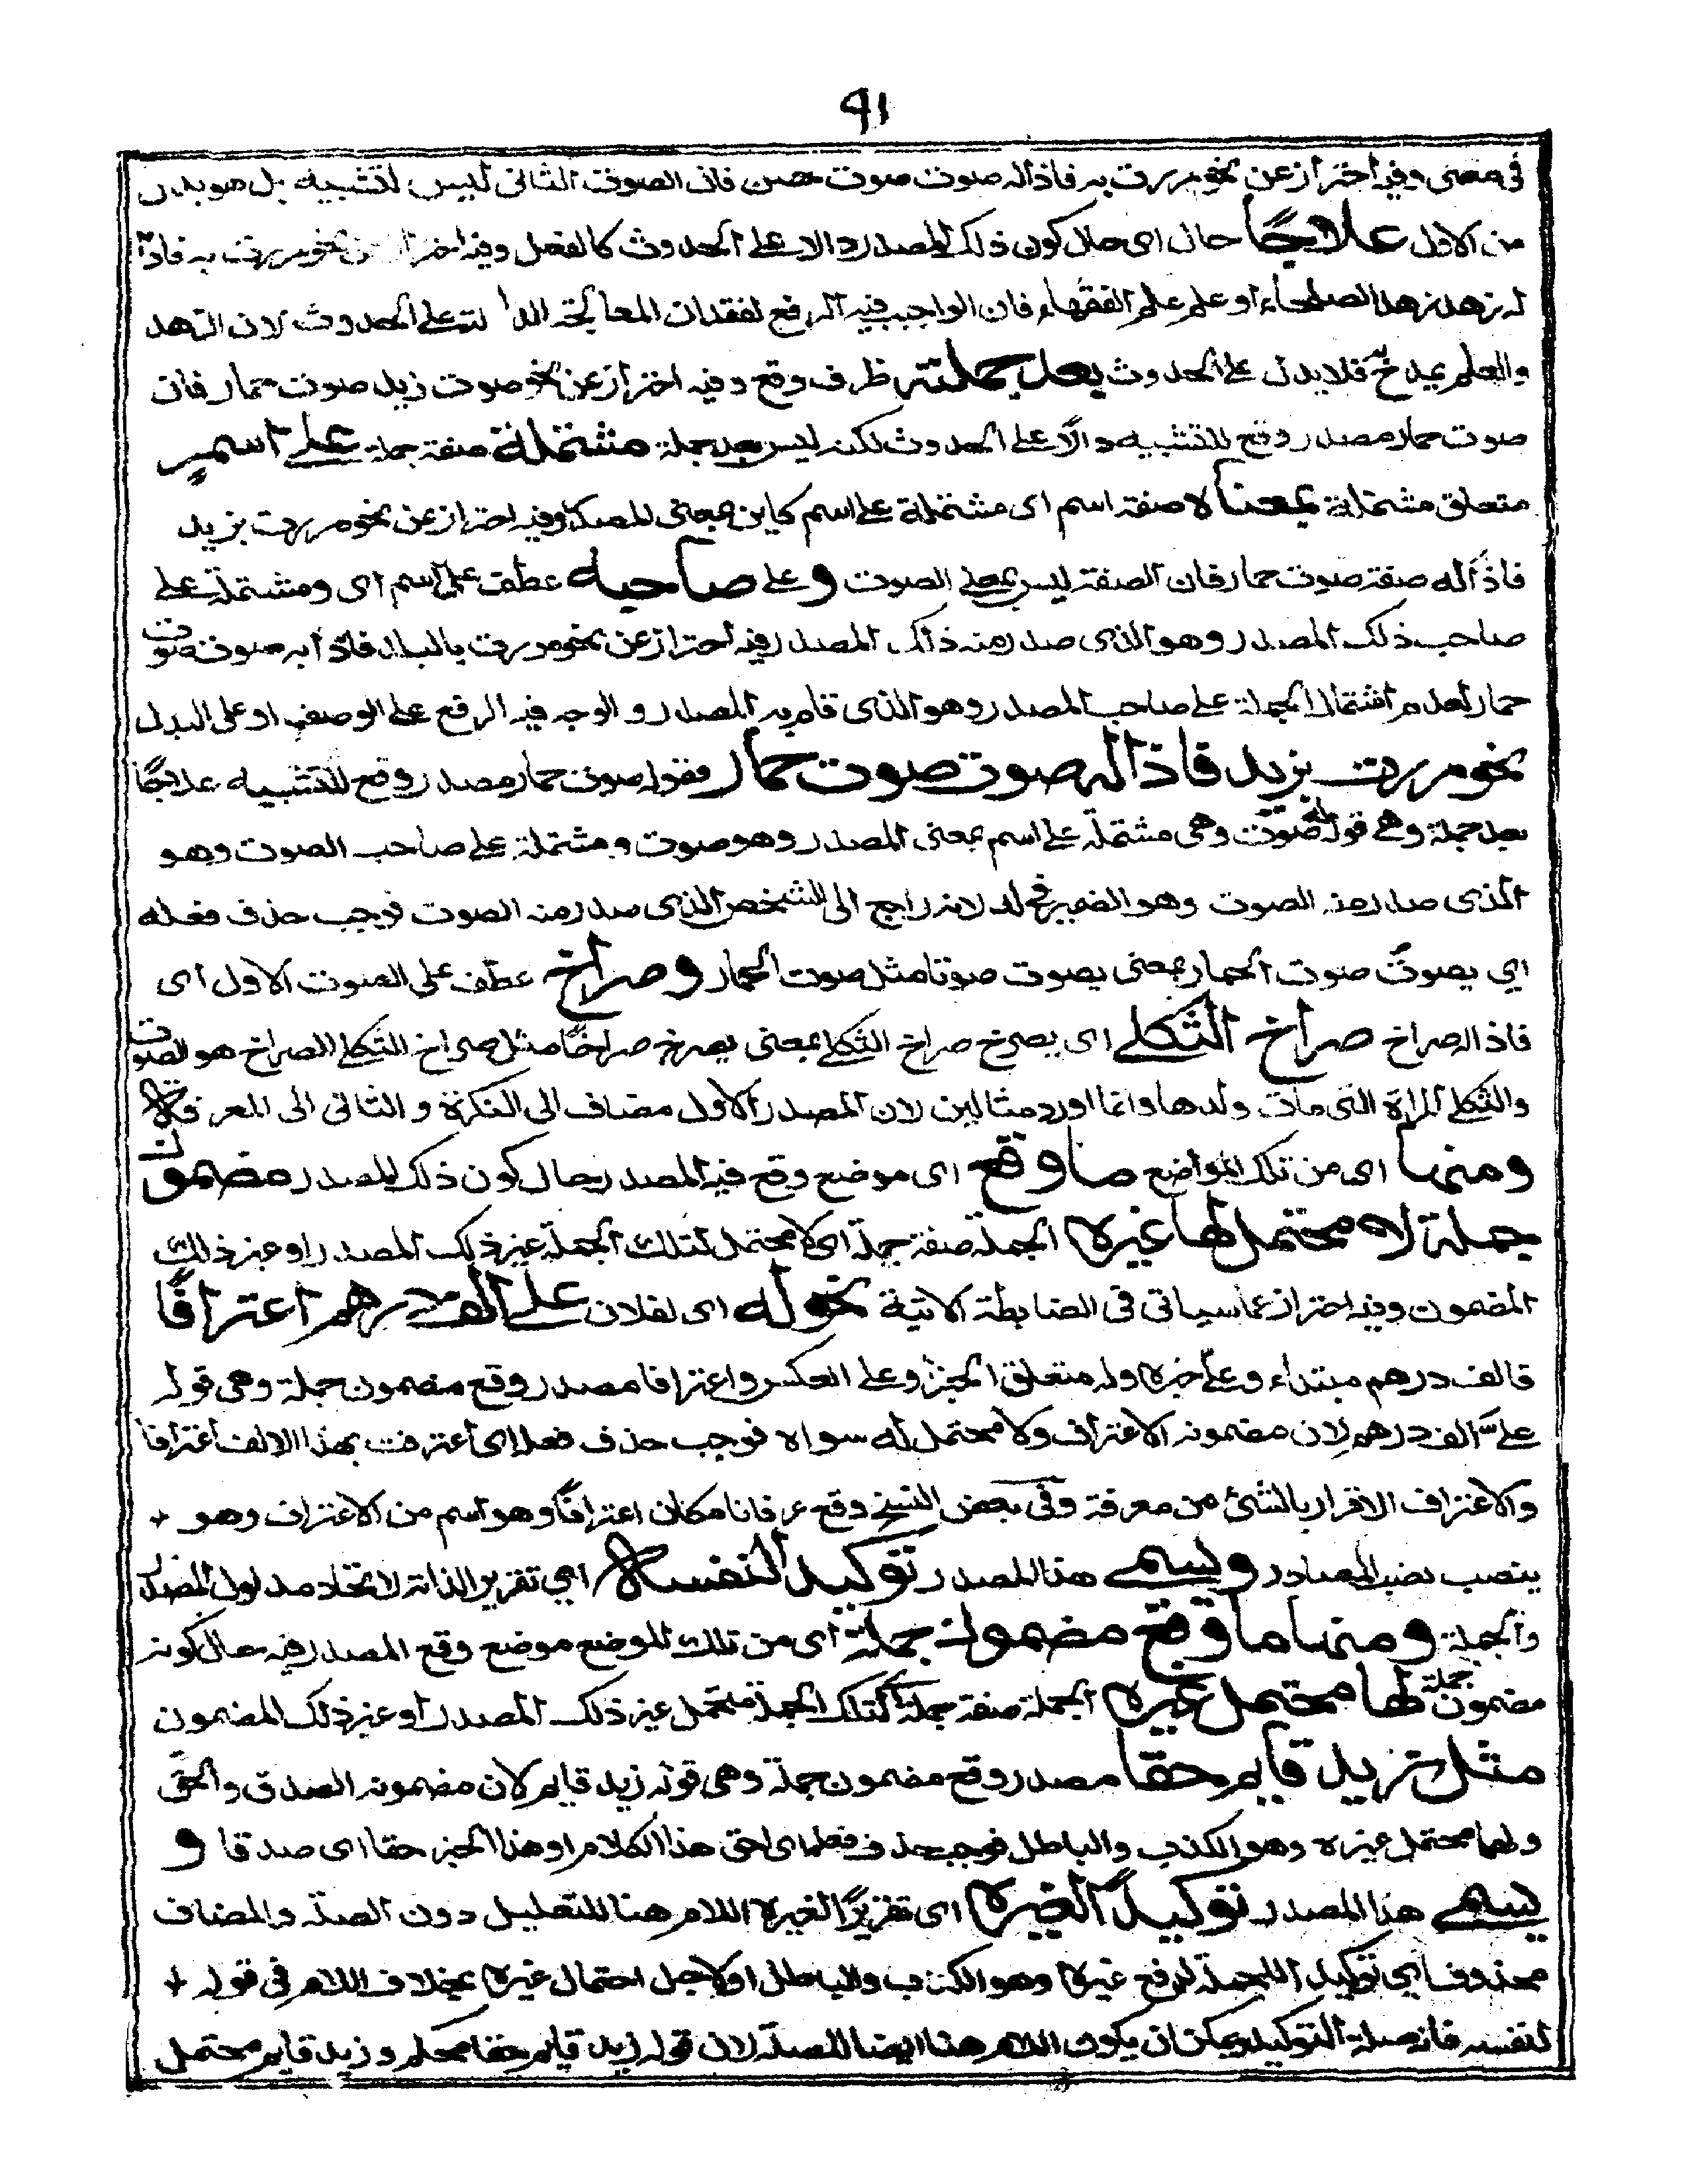 ٩١
في معنى وفيه احتراز عن نحو مررت به فاذا له صوت صوت حسن فان الصوت الثاني ليس لتشبيه بل هو بدل
من الاول علاجًا حال اى حال كون ذلك المصدر دالا على الحدوث كالفعل وفيه احتراز عن نحو مررت به فاذا
له زهد زهد الصلحاء او علم علم الفقهاء فان الواجب فيه الرفع لفقدان المعالجة الدالة على الحدوث لان الزهد
والعلم يمدح فلا يدل على الحدوث بعد جملة ظرف وقع وفيه احتراز عن نحو صوت زيد صوت حمار فان
صوت حمار مصدر وقع للتشبيه دالًا على الحدوث لكنه ليس بعد جملة مشتملة صفة جملة على اسم
متعلق مشتملة بمعناه صفة اسم اى مشتملة على اسم كاين بمعنى المصدر وفيه احتراز عن نحو مررت بزيد
فاذا له صفة صوت حمار فان الصفة ليس بمعنى الصوت و على صاحبه عطف على اسم اى ومشتملة على
صاحب ذلك المصدر وهو الذى صدر منه ذلك المصدر وفيه احتراز عن نحو مررت بالبلد فاذا به صوت صوت
حمار لعدم اشتمال الجملة على صاحب المصدر وهو الذى قام به المصدر و الوجه فيه الرفع على الوصف او على البدل
نحو مررت بزيد فاذا له صوت صوت حمار فقوله صوت حمار مصدر وقع للتشبيه علاجًا
بعد جملة وهى قوله له صوت وهى مشتملة على اسم بمعنى المصدر وهو صوت و مشتملة على صاحب الصوت وهو
الذى صدر منه الصوت وهو الضمير في له لانه راجع الى الشخص الذى صدر منه الصوت فوجب حذف فعله
اى يصوت صوت الحمار بمعنى يصوت صوتا مثل صوت الحمار و صراخ عطف على الصوت الاول اى
فاذا له صراخ صراخ الثكلى اى يصرخ صراخ الثكلى بمعنى يصرخ صراخًا مثل صراخ الثكلى الصراخ هو الصوت
والثكلى المراة التى مات ولدها وانما اورد مثالين لان المصدر الاول مضاف الى النكرة و الثانى الى المعرفة
ومنها اى من تلك المواضع ما وقع اى موضع وقع فيه المصدر حال كون ذلك المصدر مضمون
جملة لا محتمل لها غيره الجملة صفة جملة اى لا محتمل لتلك الجملة غير ذلك المصدر او غير ذلك
المضمون وفيه احتراز عما سياتى فى الضابطة الاتية نحو له اى لفلان على الف درهم اعترافًا
فالف درهم مبتداء و على خبره وله متعلق الخبر او على العكس واعترافا مصدر وقع مضمون جملة وهى قوله
علىّ الف درهم لان مضمونه الاعتراف ولا محتمل له سواه فوجب حذف فعله اى اعترفت بهذا الالف اعترافا
والاعتراف الاقرار بالشئ من معرفة وفى بعض النسخ وقع عرفانا مكان اعترافًا وهو اسم من الاعتراف وهو +
ينصب نصب المصادر ويسمى هذا المصدر توكيد النفسه اى تقريرا لذاته لاتحاد مدلول المصدر
والجملة ومنها ما وقع مضمون جملة اى من تلك المواضع موضع وقع المصدر فيه حال كونه
مضمون جملة لها محتمل غيره الجملة صفة جملة اى لتلك الجملة محتمل غير ذلك المصدر او غير ذلك المضمون
مثل زيد قايم حقا مصدر وقع مضمون جملة وهى قوله زيد قايم لان مضمونه الصدق والحق
ولها محتمل غيره وهو الكذب والباطل فوجب حذف فعله اى احق هذا الكلام او هذا الخبر حقا اى صدقا و
يسمى هذا المصدر توكيدًا لغيره اى تقريرًا لغيره اللام هنا للتعليل دون الصلة والمضاف
محذوف اى توكيد الجملة لدفع غيره وهو الكذب والباطل او لاجل احتمال غيره بخلاف اللام فى قوله +
لنفسه فانه صلة التوكيد ويمكن ان يكون اللام هنا ايضا للصلة لان قوله زيد قايم حقا محكم وزيد قايم محتمل